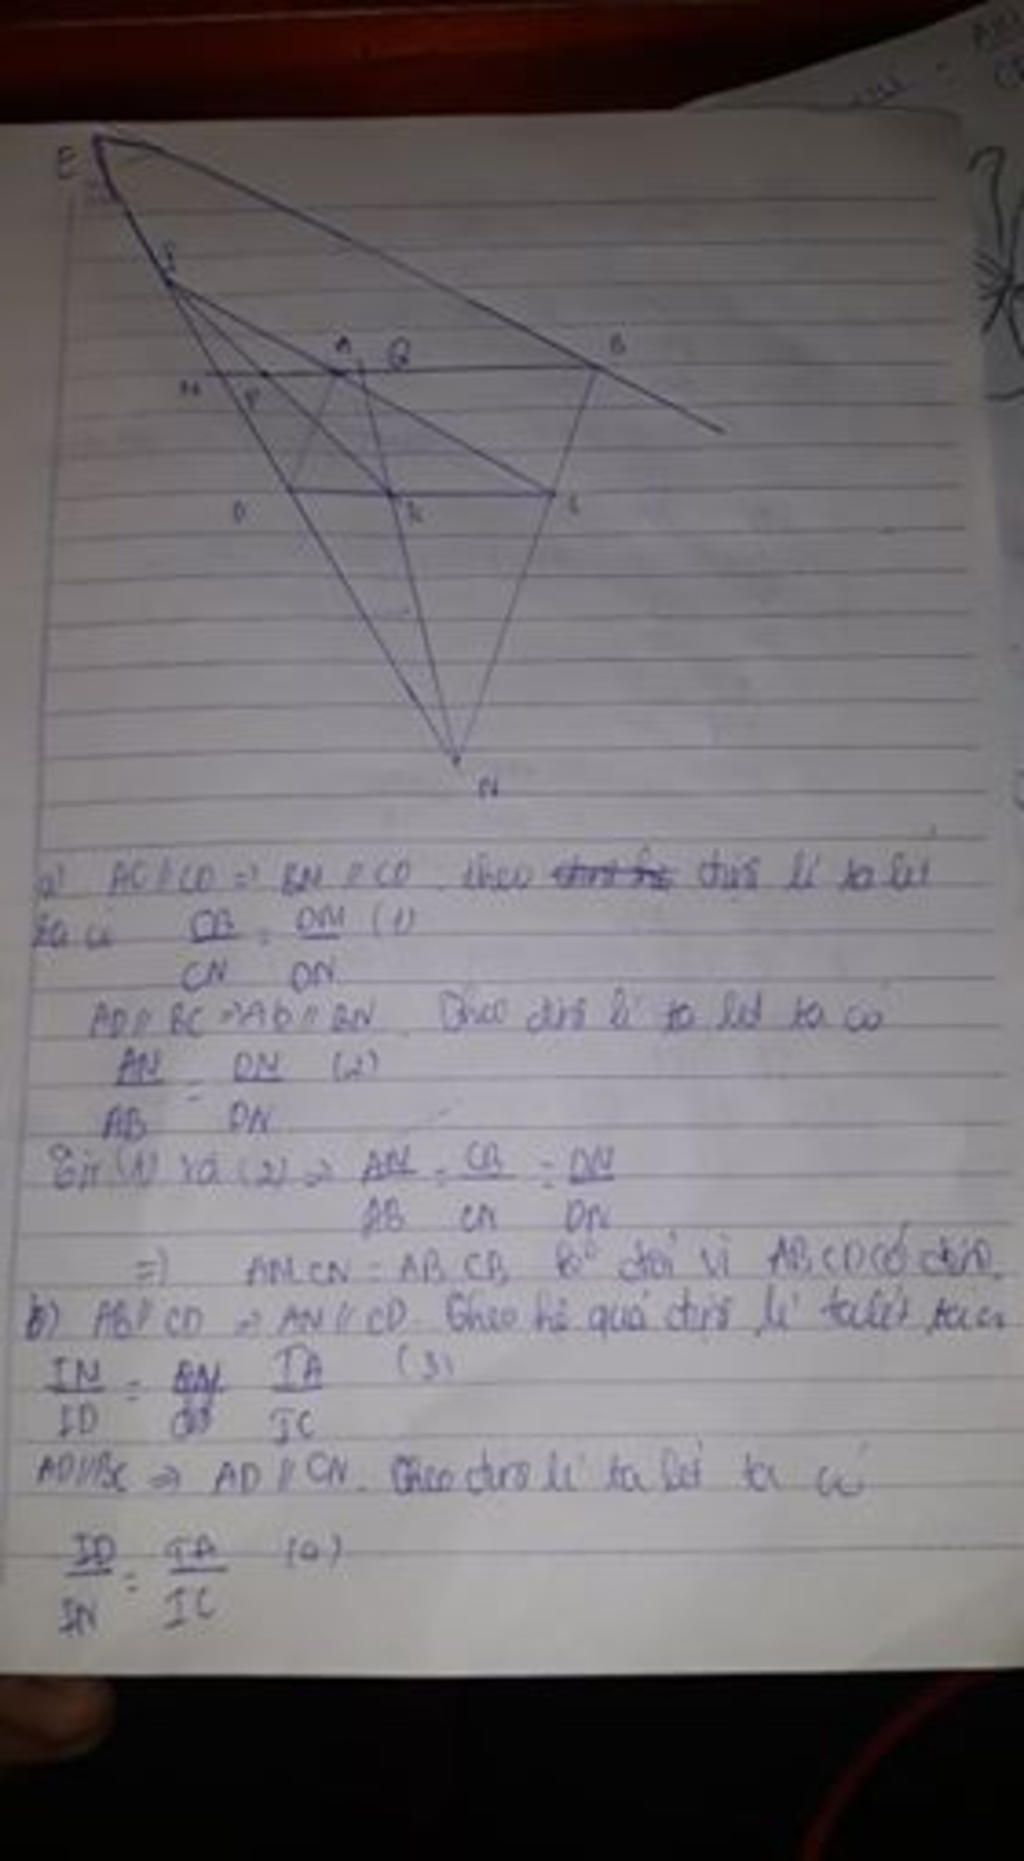 E
I
A
Q
B
M
P
D
K
C
N
a) AC // CD => BM // CD. Theo định lí ta lét
ta có CB = DM (1)
CN DN
AD // BC => AD // BN. Theo định lí ta lét ta có
AM = DM (2)
AB DN
Từ (1) và (2) => AM = CB = DM
AB CN DN
=> AM.CN = AB.CB đổi vì ABCD cố định.
b) AB // CD => AM // CD. Theo hệ quả định lí ta lét ta có
IM = IA (3)
ID IC
AD // BC => AD // CN. Theo định lí ta lét ta có
ID = IA (4)
IN IC